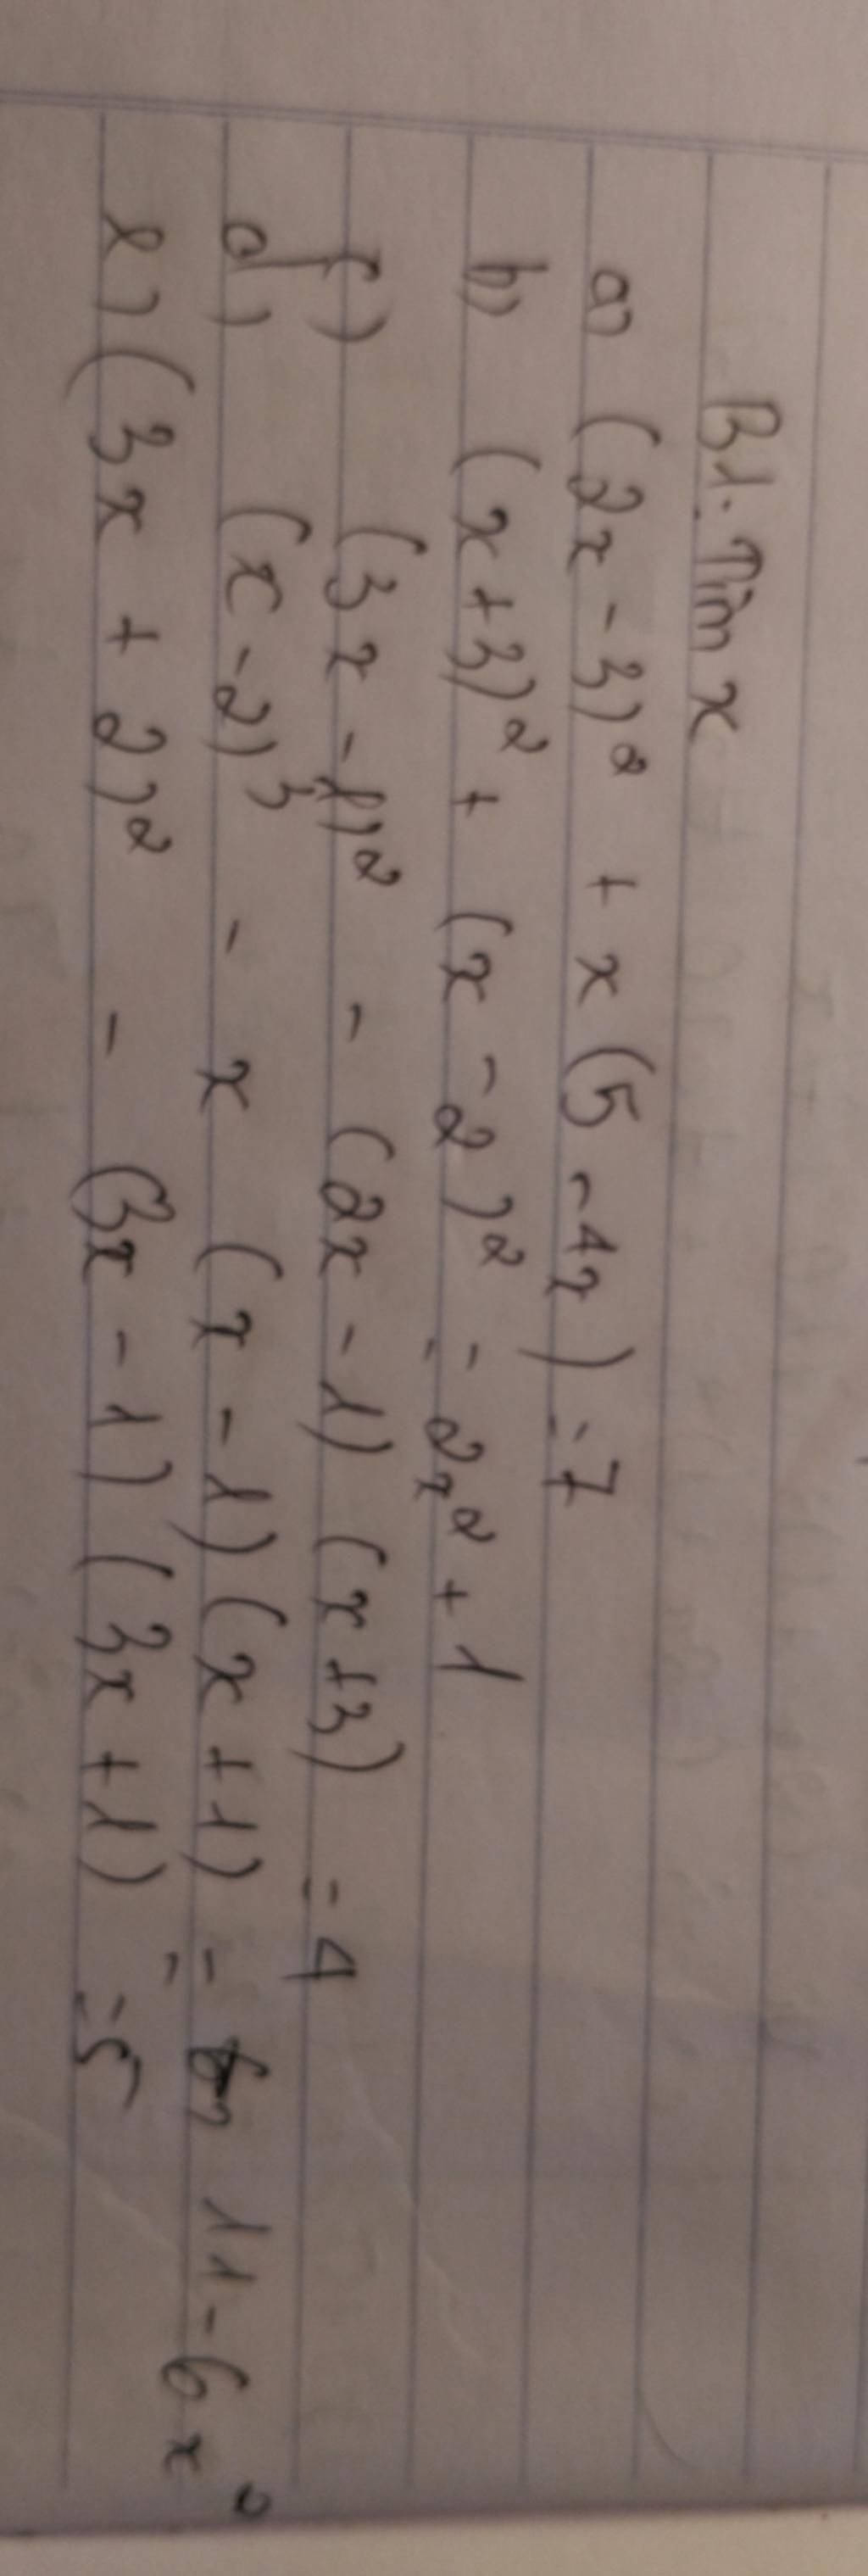 B1. Tìm x
a) (2x - 3)² + x (5 - 4x) = 7
b) (x + 3)² + (x - 2)² = 2x² + 1
f) (3x - 1)² - (2x - 1) (x + 3) = 4
d) (x - 2)³ - x (x - 1) (x + 1) = 11 - 6x²
e) (3x + 2)² - (3x - 1) (3x + 1) = 5